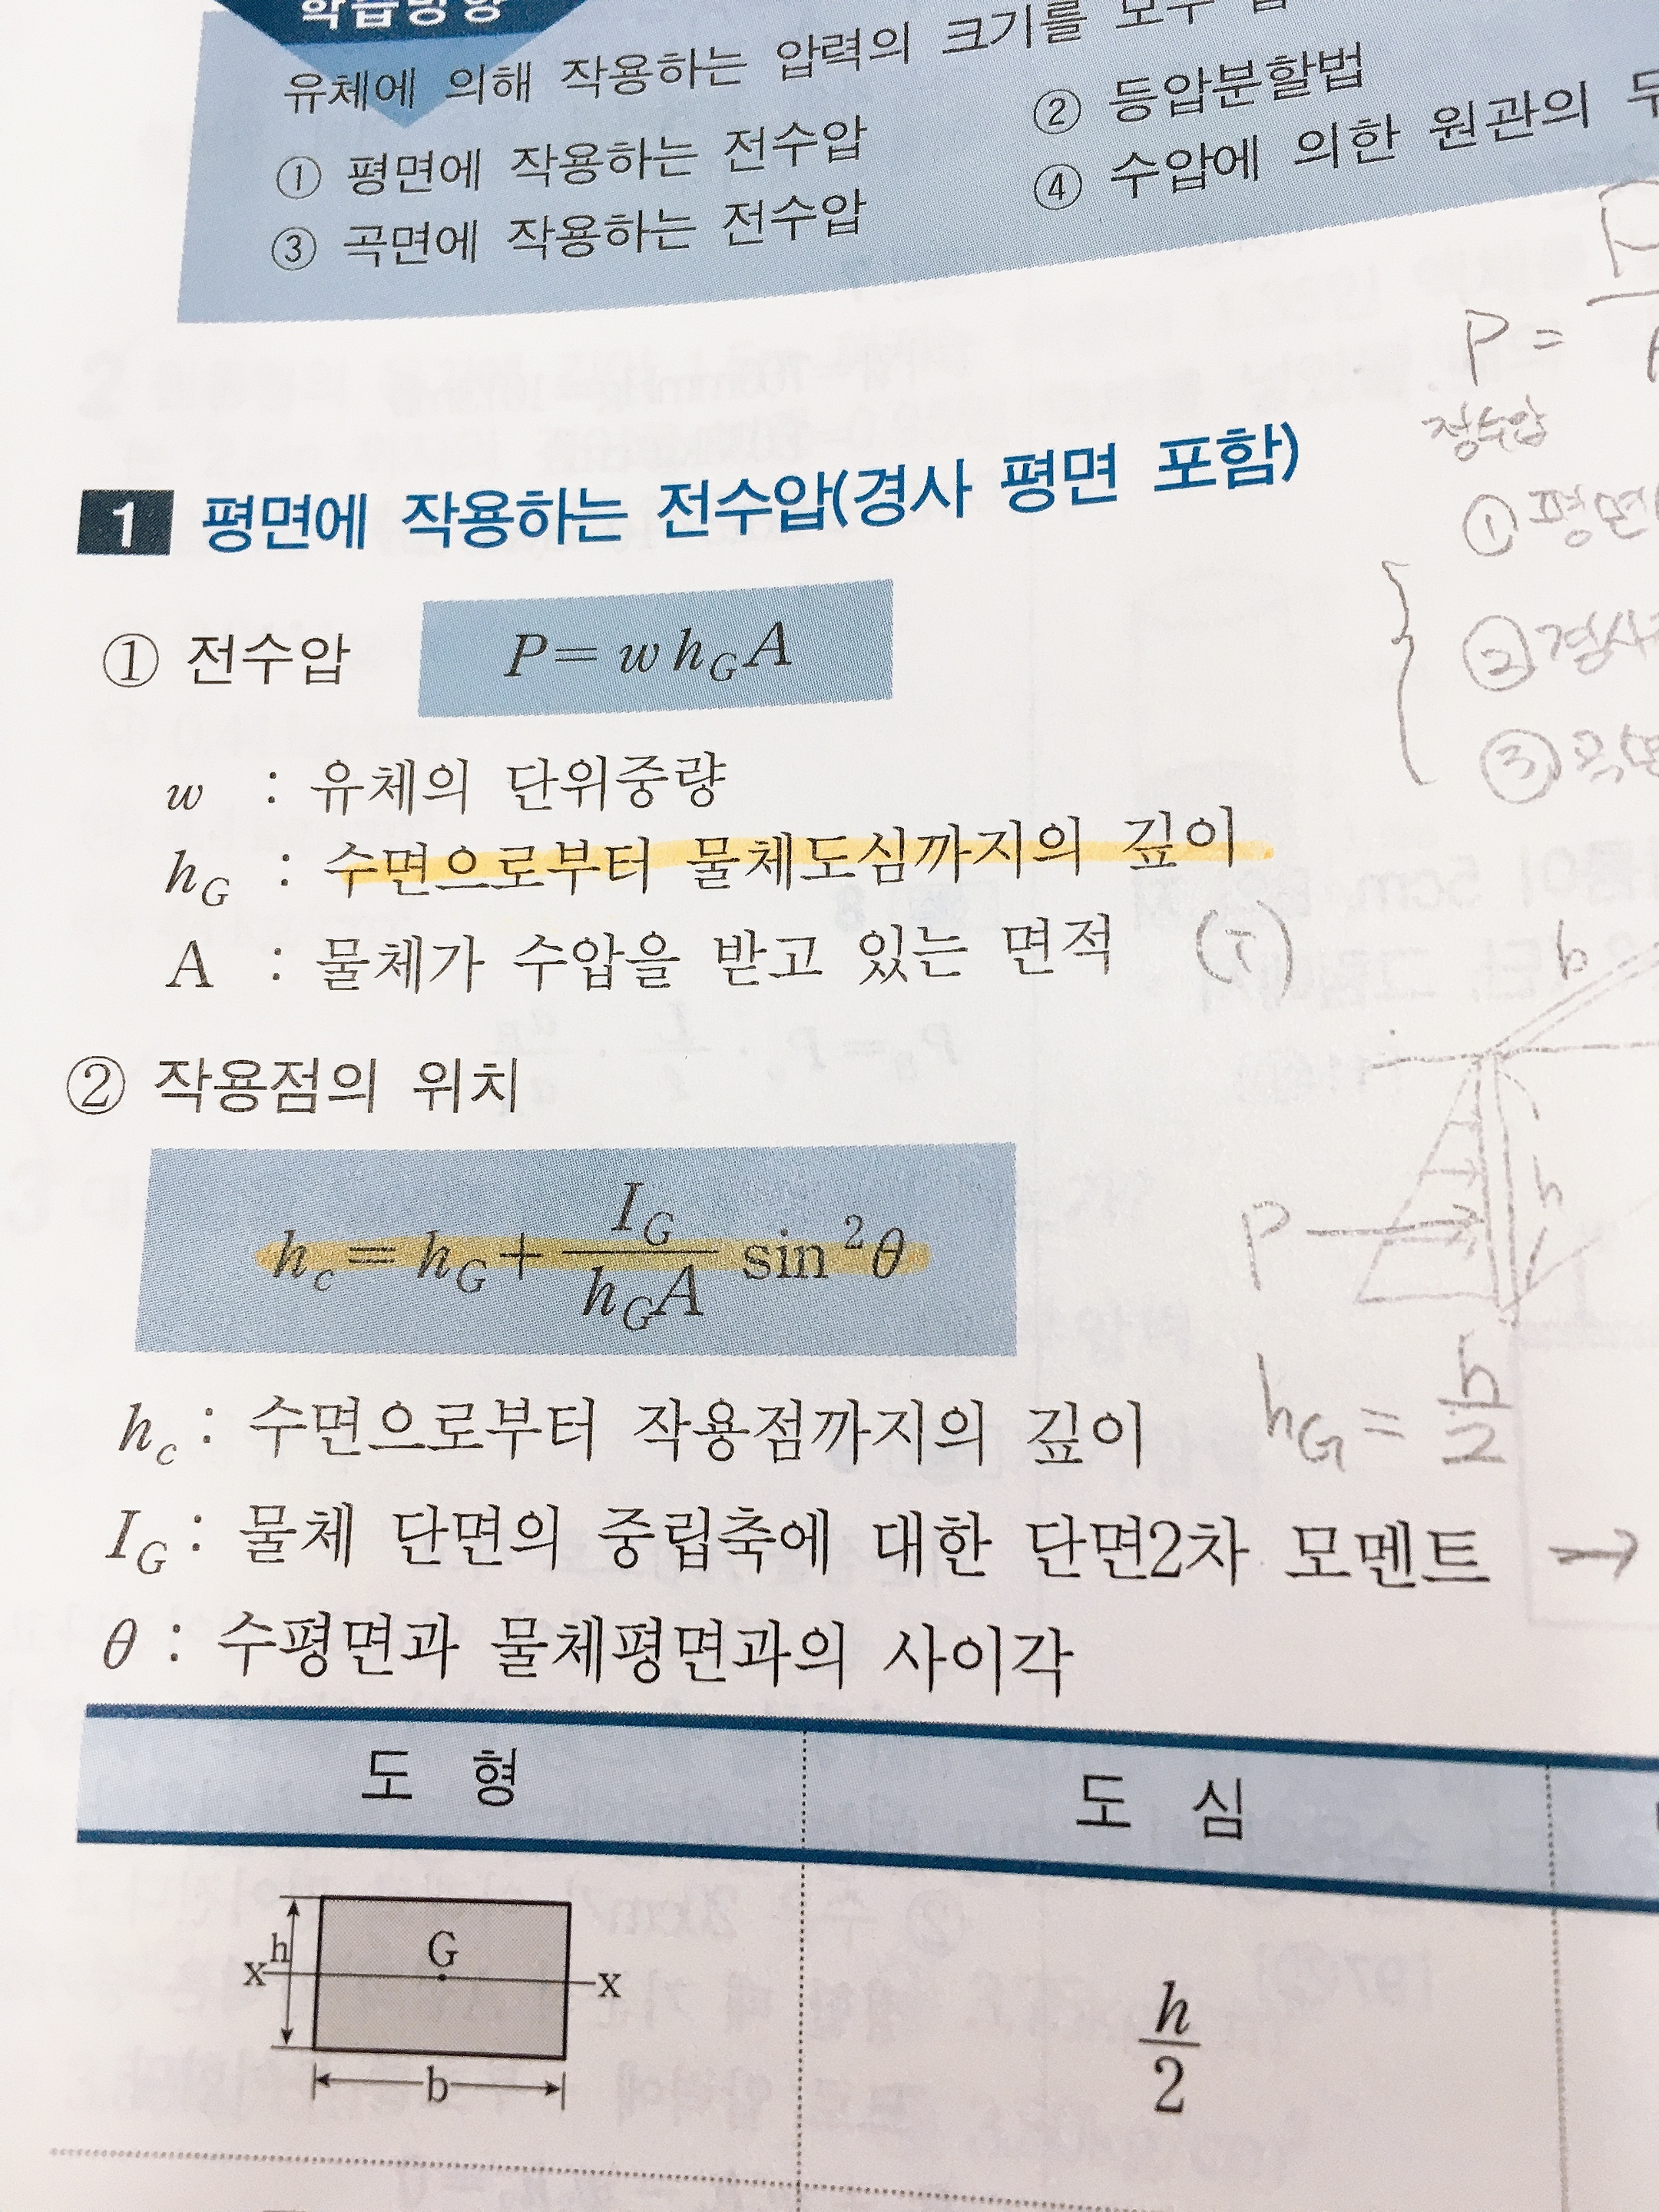 학습방향
유체에 의해 작용하는 압력의 크기를 모두
① 평면에 작용하는 전수압 ② 등압분할법
③ 곡면에 작용하는 전수압 ④ 수압에 의한 원관의
P =
정수압
1 평면에 작용하는 전수압(경사 평면 포함)
① 평면
① 전수압 P = w h_G A
② 경사
w : 유체의 단위중량
③ 곡면
h_G : 수면으로부터 물체도심까지의 깊이
A : 물체가 수압을 받고 있는 면적
b
② 작용점의 위치
h_c = h_G + I_G / h_G A sin²θ
P h
h_c : 수면으로부터 작용점까지의 깊이 h_G = h/2
I_G : 물체 단면의 중립축에 대한 단면2차 모멘트 →
θ : 수평면과 물체평면과의 사이각
도 형 도 심
h G
x x
b
h/2